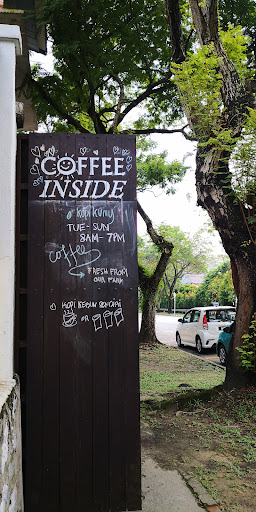 COFFEE
INSIDE
@ kopikuny
TUE - SUN
8AM - 7PM
coffee
FRESH FROM
OUR PARK
KOPI KEBUN
OR